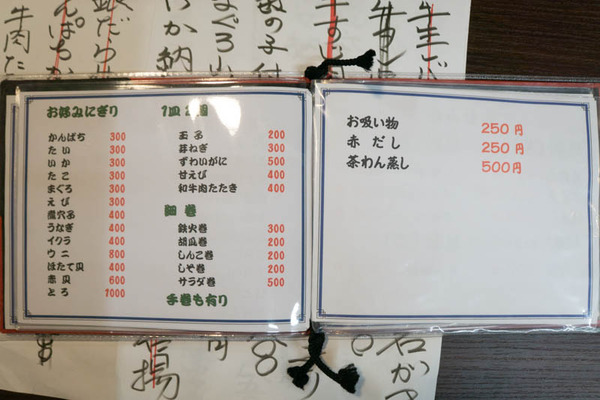 お好みにぎり 1皿2個
かんぱち 300
たい 300
いか 300
たこ 300
まぐろ 300
えび 300
煮穴子 400
うなぎ 400
イクラ 400
ウニ 800
ほたて貝 400
赤貝 600
とろ 1000
玉子 200
芽ねぎ 300
ずわいがに 500
甘えび 400
和牛肉たたき 400
細巻
鉄火巻 300
胡瓜巻 200
しんこ巻 200
しそ巻 200
サラダ巻 500
手巻も有り
お吸い物 250円
赤だし 250円
茶わん蒸し 500円